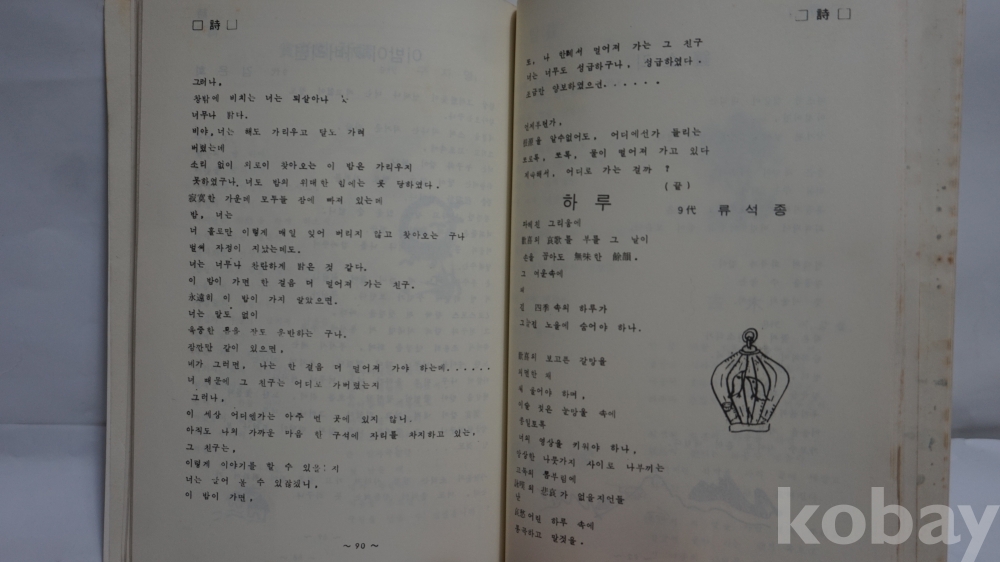 □ 詩 □
그러나,
창밖에 비치는 너는 되살아나
너무나 맑다.
비야, 너는 해도 가리우고 달도 가려
버렸는데
소리 없이 지조이 찾아오는 이 밤은 가리우지
못하였구나. 너도 밤의 위대한 힘에는 못 당하였다.
寂寞한 가운데 모두들 잠에 빠져 있는데
밤, 너는
너 홀로만 이렇게 매일 잊어 버리지 않고 찾아오는 구나
벌써 자정이 지났는데도.
너는 너무나 찬란하게 맑은 것 같다.
이 밤이 가면 한 걸음 더 멀어져 가는 친구.
永遠히 이 밤이 가지 말았으면.
너는 말도 없이
육중한 몸도 운반하는 구나.
잠깐만 같이 있으면,
네가 그러면, 나는 한 걸음 더 멀어져 가야 하는데.......
너 때문에 그 친구는 어디로 가버렸는지
그러나,
이 세상 어디엔가는 아주 먼 곳에 있지 않니.
아직도 나의 가까운 마음 한 구석에 자리를 차지하고 있는,
그 친구는,
이렇게 이야기를 할 수 있을 지
너는 날어 올 수 있잖니,
이 밤이 가면,
~ 90 ~
□ 詩 □
오, 나 한테서 멀어져 가는 그 친구
너는 너무도 성급하구나, 성급하였다.
조금만 양보하였으면......
언제부턴가,
을 알수없어도, 어디에선가 들리는
보드득, 보드득, 꽃이 떨어져 가고 있다
어디로 가는 걸까 ?
(끝)
하 루
9代 류 석 종
그리움에
歡喜의 哀歌를 부를 그 날이
손을 꼽아도 無味한 餘韻.
그 어둠속에
긴 四季속의 하루가
노을에 숨어야 하나.
歡喜의 보고픈 갈망을
외면한 채
숨어야 하며,
이슬 젖은 눈망울 속에
너의 영상을 키워야 하나,
앙상한 나뭇가지 사이로 나부끼는
고독의 몸부림에
의 悲哀가 없을지언들
나
哀愁어린 하루 속에
통곡하고 말것을.
kobay